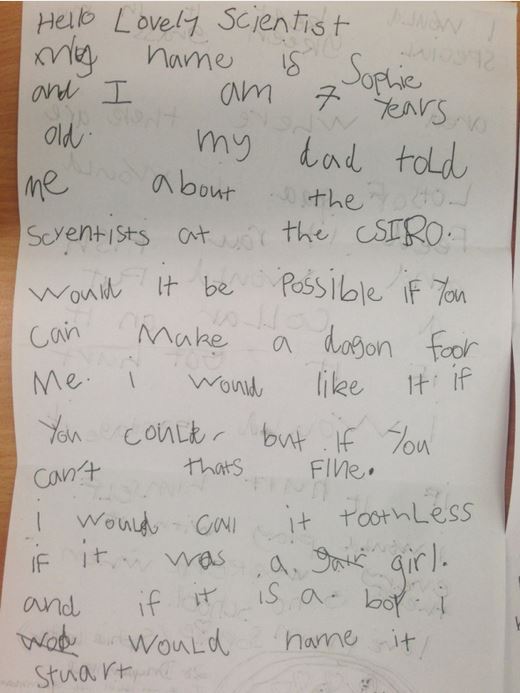 Hello Lovely Scientist
my name is Sophie
and I am 7 Years
old. my dad told
me about the
scyentists at the CSIRO.
Would it be Possible if You
can Make a dagon foor
Me. I would like it if
You could but if You
can't thats Fine.
i would call it toothless
if it was a girl.
and if it is a boy I
would name it
Stuart